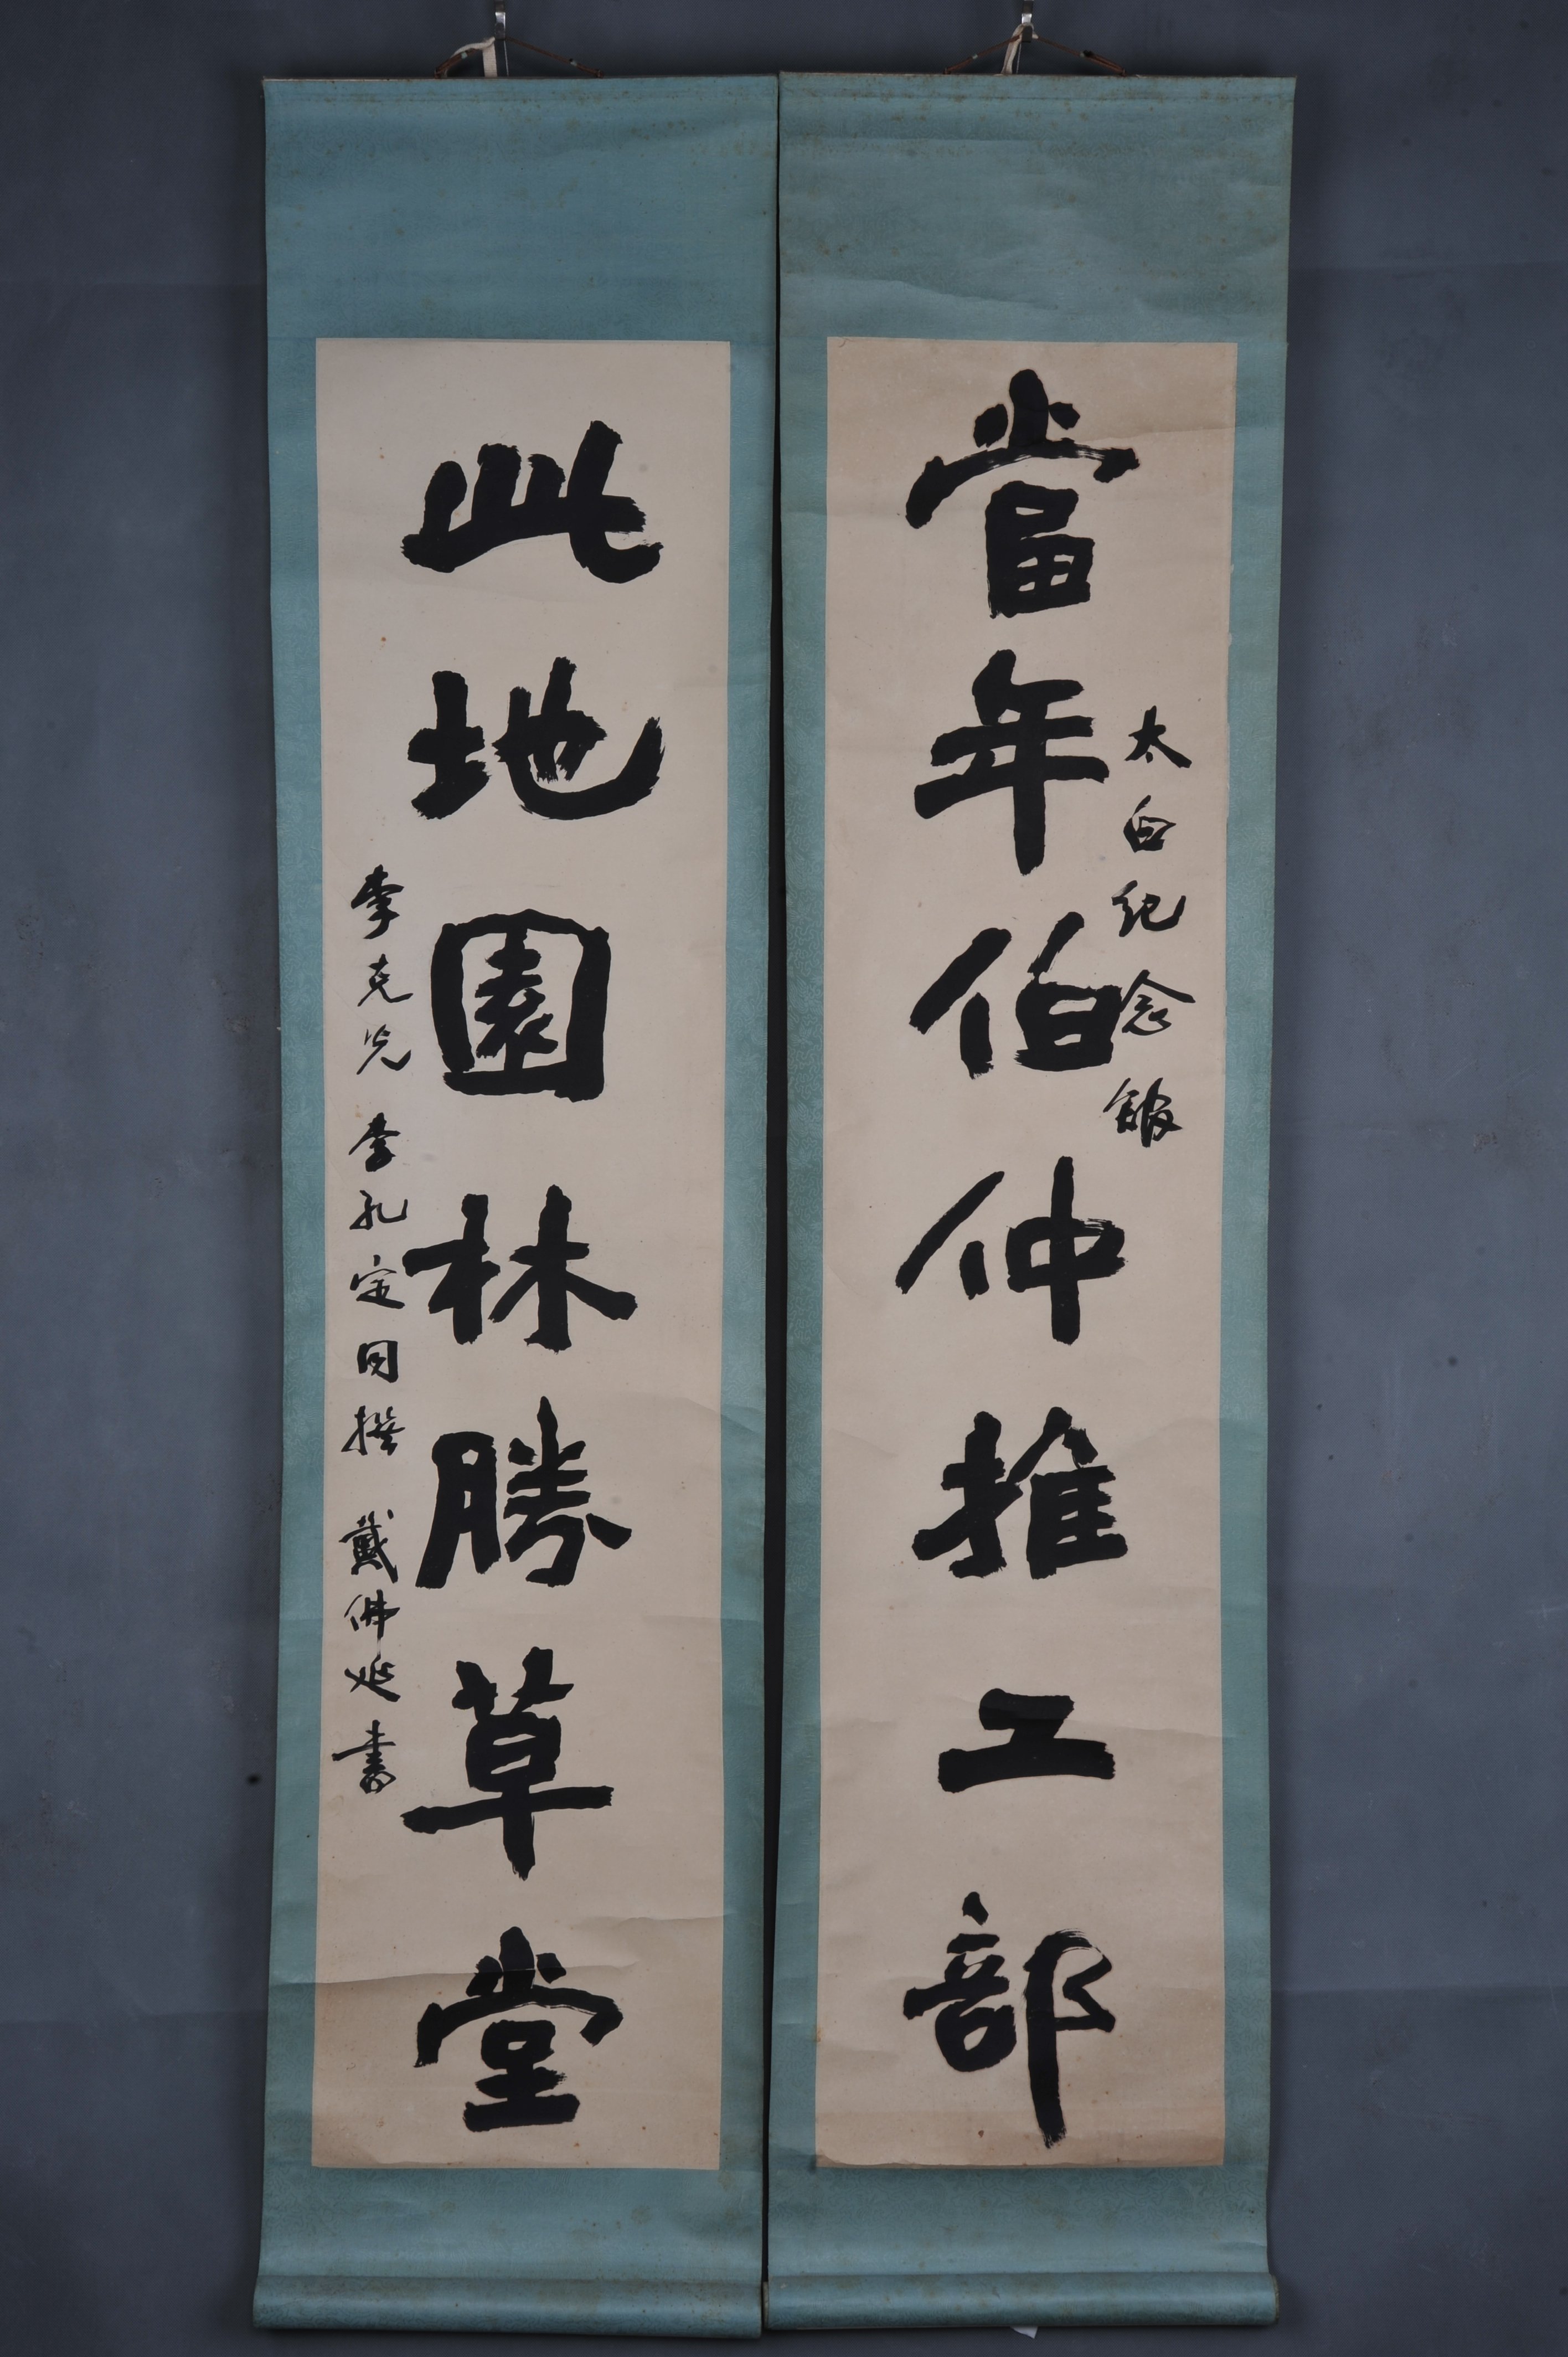 當年伯仲推工部
太白纪念館
此地園林勝草堂
李克光 李孔定同撰 戴佛延書